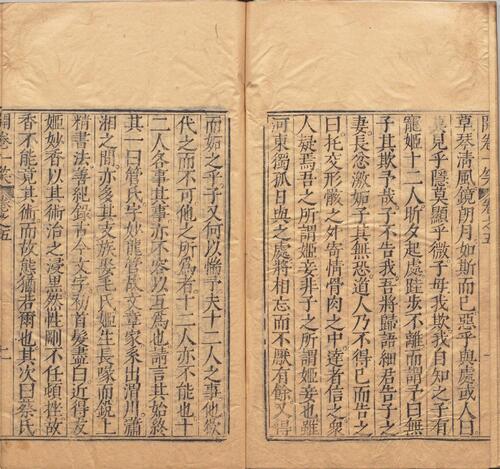 開卷一笑 卷之五
章琴清風鏡朗月如斯而已惡乎與處或人曰
莫見乎隱莫顯乎微子毋我欺我自知之子有
寵姬十二人昕夕起處跬步不離而謂予曰
子其欺予哉子不告我吾將歸語細君告子之
妻長忿激妬子其無恐道人乃不得已而告之
曰托交形骸之外寄情骨肉之中達者信之衆
人疑焉吾之所謂姬妾非子之所謂姬妾也雖
河東獨孤日與之處將相忘而不厭有餘又得
而妬之乎子又何以惴予夫十二人之事他欲
代之而不可他之所爲者十二人亦不能也十
二人各事其事亦不容以互爲也請言其始終
其一曰管氏字妙龍管故文章家系出渭川瀟
湘之間亦多其支族娶毛氏姬生長喙而銳上
精書法善紀錄古今文字初首髮盡白近得友
姬妙香以其術治之浸黑然性剛不任頓挫故
香不能竟其術而故態猶若爾也其次曰蔡氏
開卷一笑 卷之五